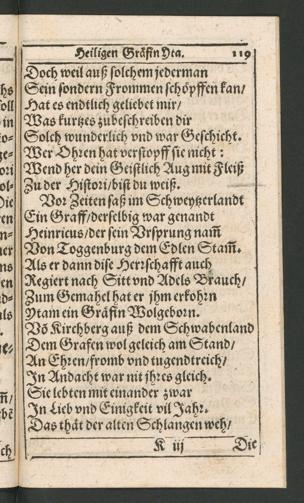 Heiligen Gräfin Yta. 119
Doch weil auß solchem jederman
Sein sondern Frommen schöpffen kan/
Hat es endtlich geliebet mir/
Was kurtzes zubeschreiben dir
Solch wunderlich vnd war Geschicht.
Wer Ohren hat verstopff sie nicht:
Wend her dein Geistlich Aug mit Fleiß
Zu der Histori/ bist du weiß.
Vor Zeiten saß im Schweytzerlandt
Ein Graff/ derselbig war genandt
Heinricus/ der sein Vrsprung nam̃
Von Toggenburg dem Edlen Stam̃.
Als er dann dise Herrschafft auch
Regiert nach Sitt vnd Adels Brauch/
Zum Gemahel hat er jhm erkohrn
Ytam ein Gräfin Wolgeborn.
Võ Kirchberg auß dem Schwabenland
Dem Grafen wol geleich am Stand/
An Ehren/ fromb vnd tugendtreich/
In Andacht war nit jhres gleich.
Sie lebten mit einander zwar
In Lieb vnd Einigkeit vil Jahr.
Das thät der alten Schlangen weh/
K iij Die